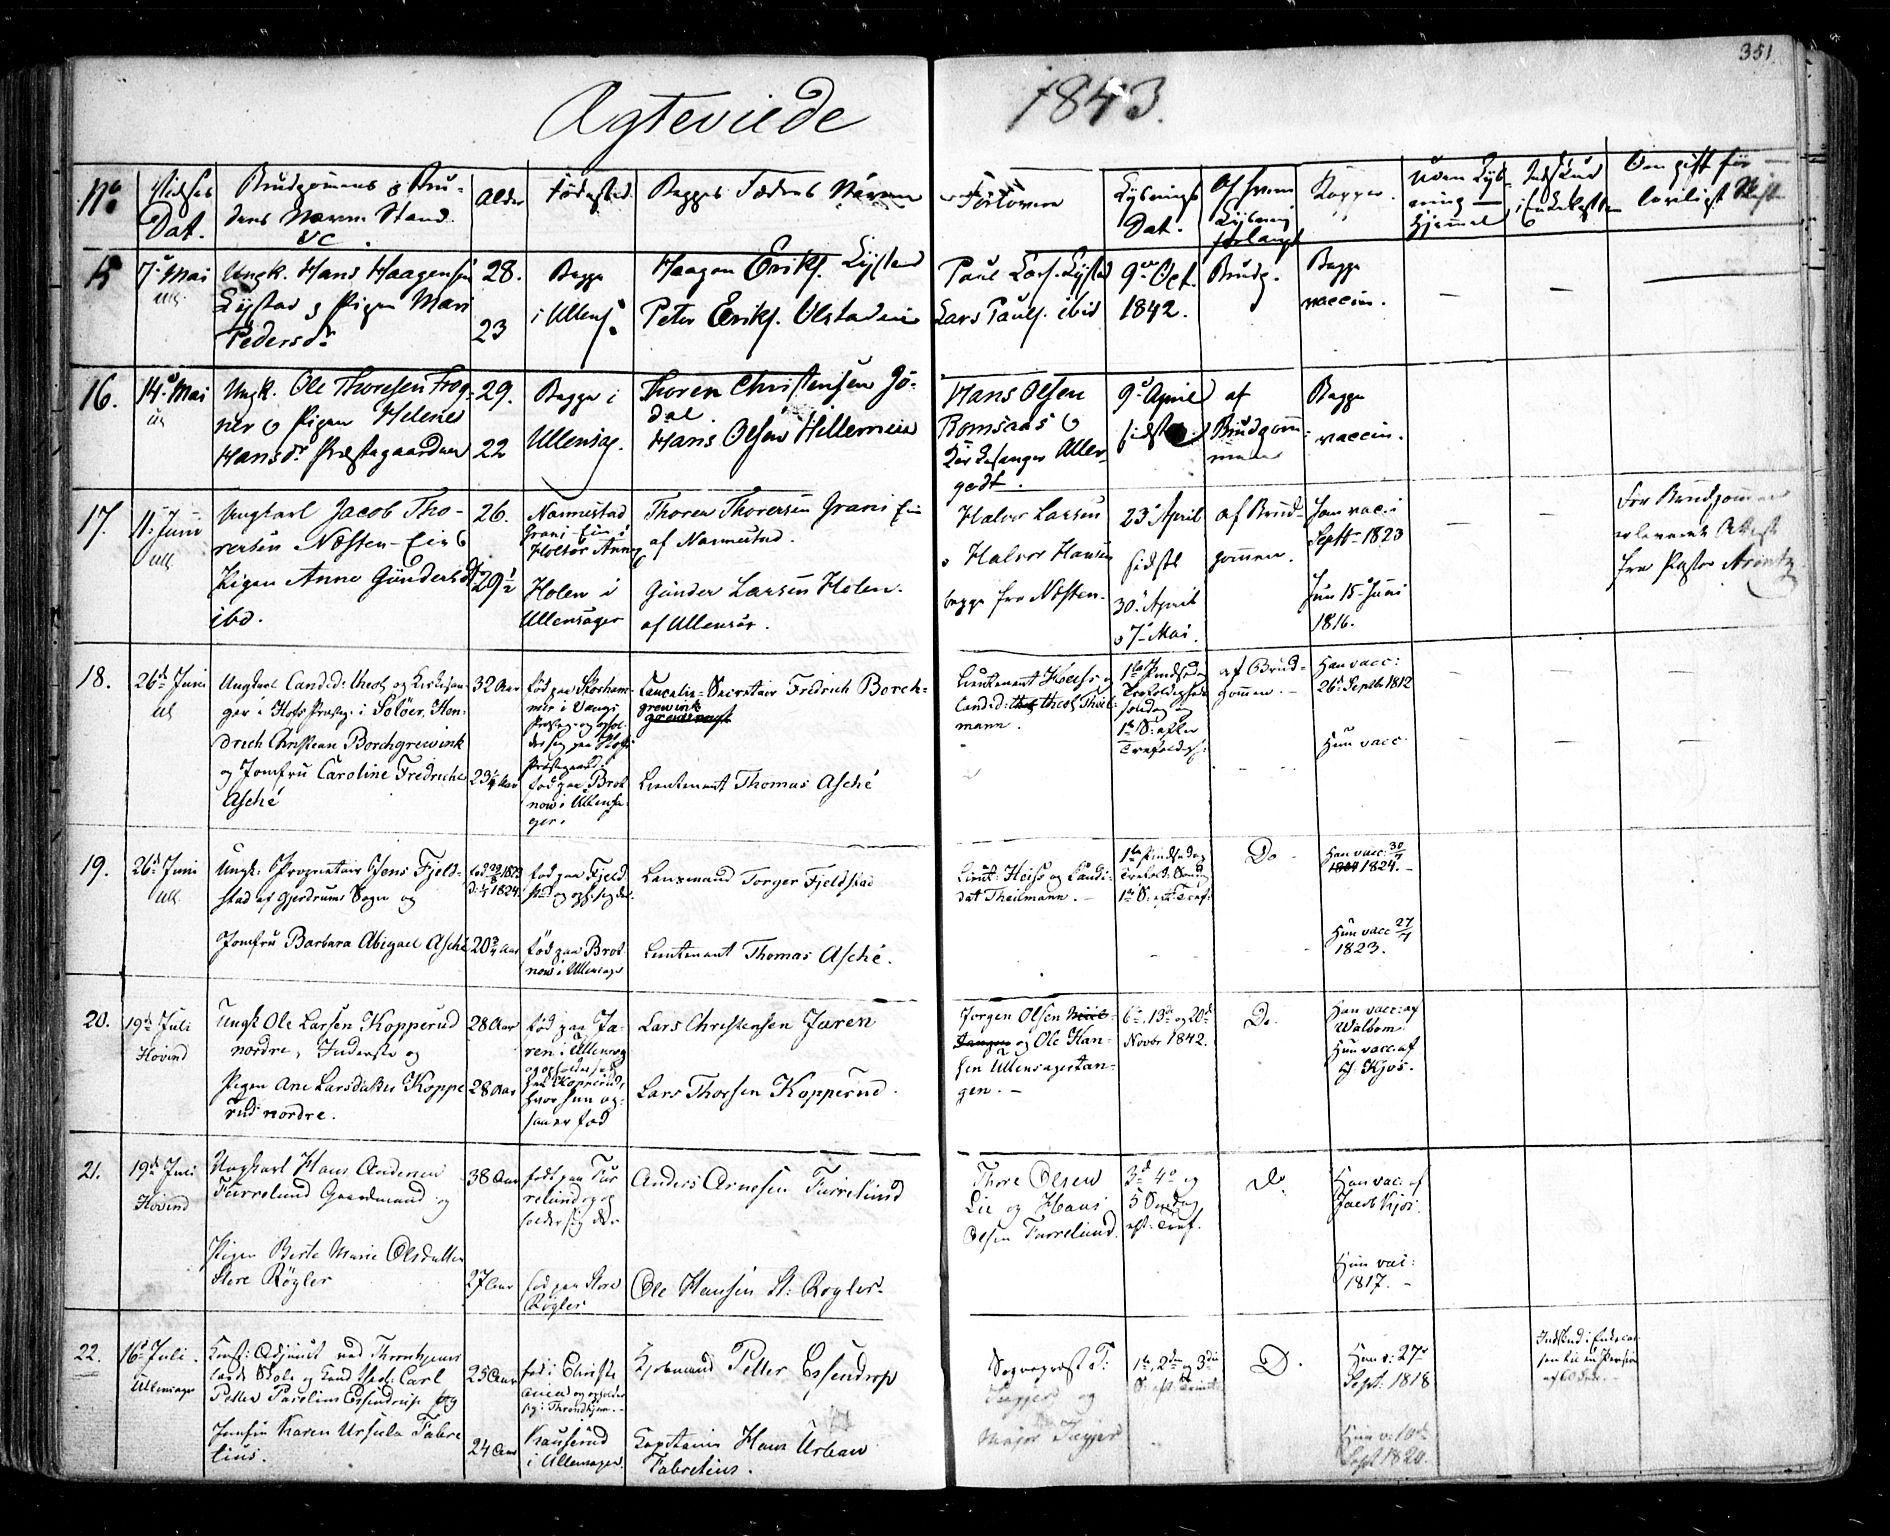 351
Ægteviede 1843.
No. Vielses Dat. Brudgommens og Brudens Navne Stand &c. Alder Fødested Begges Fædres Navne Forlovere Lysnings Dat. Af hvem Lysning forlangt Kopper.
15 7de Mai Ull.
Ungk. Hans Haagensen
Lystad og Pigen Mari
Pedersdr
28.
23
Begge
i Ullens.
Haagen Eriks. Lystad
Peter Eriks. Olstadeie
Paul Lars. Lystad
Lars Pauls. ibid
9de Oct.
1842.
Brudg.
Begge
vaccin.
16. 14. Mai
Ull
Ungk. Ole Thoresen Frog-
ner & Pigen Helene
Hansdr Præstegaarden
29.
22
Begge i
Ullensag.
Thoren Christensen Jø-
dal
Hans Olsen Hillerneie
Hans Olsen
Romsaas &
Kirkesanger Aller-
godt.
9de April
sidst
af
Brudgom-
men
Begge
vaccin.
17. 11. Juni
Ull
Ungkarl Jacob Tho-
resen Nøsten-Eie &
Pigen Anne Gundersdr
ibd.
26.
29½
Nannestad
Holter Annex
Holen i
Ullensager
Thoren Thoresen Grani Eie
af Nannestad.
Gunder Larsen Holen.
af Ullensar.
Halvor Larsen
o Halvor Hansen
begge fra Nøsten.
23de April
sidste
30. April
o 7. Mai.
af Brud-
gommen.
Ham vac. i
Septbr 1823
Hun 15. Juni
1816.
For Brudgommen
erleveret Attest
fra Pastor Arentz
18. 26de Juni
Ull
Ungkarl Candid: theol og Kirkesan-
ger i Hofs Præsteg. i Soløer, Hen-
drich Christian Borchgrewink
og Jomfru Caroline Fredrikke
Asché
32 Aar
23¼ Aar
fød paa Storham-
mer i Vangs
Præsteg. og ophol-
der sig paa Hofs
Præstegaard.
fød paa Brot-
now i Ullensa-
ger.
Cancelie-Secretair Fredrich Borch-
grewink
Lieutenant Thomas Asché
Lieutenant Heiss og
Candid: theol Theil-
mann.
1ste Pindsedag
Trefoldigheds
søndag og
1ste S: efter
Trefoldigh:
af Brud-
gommen.
Han vacc:
26de Septbr 1812
Hun vacc.
19. 26de Juni
Ull.
Ungk: Proprietair Jens Fjeld-
stad af Gjerdrums Sogn og
Jomfru Barbara Abigael Asché
20¾ Aar
fød paa Fjeld-
stad og oph. sig der.
fød paa Brot-
now i Ullensager
Lensmand Torger Fjeldstad
Lieutenant Thomas Asché.
Lieut: Heiss og Candi-
dat Theilmann.
1ste Pindsedag
Trefold: Søndag
1ste S: eft: Tref:
Do
Han vacc: 30/7
1824.
Hun vacc 27/7
1823.
20. 19de Juli
Hovind
Ungk Ole Larsen Kopperud
nordre, Inderste og
Pigen Ane Larsdatter Koppe
rud nordre.
28 Aar
28 Aar
fød paa Ja-
ren i Ullensag
og opholder sig
paa Kopperud,
hvor hun og-
saa er fød
Lars Christensen Jaren
Lars Thorsen Kopperud.
Jørgen Olsen
og Ole Han-
sen Ullensagertan-
gen.
6te, 13de og 20de
Novbr 1842.
Do.
Han vacc: af
Walbom
Hun vacc. af
J. Kjos.
21. 19de Juli
Hovind
Ungkarl Hans Andersen
Furrelund Gaardmand og
Pigen Berte Marie Olsdatter
Store Røgler
38 Aar
27 Aar
født paa Fur
relund og op
holder sig der
fød paa Store
Røgler
Anders Arnesen Furrelund
Ole Hansen St: Røgler
Thore Olsen
Lie og Hans
Olsen Furrelund.
3de 4de og
5 Søndag
eft: Tref.
Do
Han vac: af
Jacob Kjos.
Hun vac:
1817.
22. 16de Juli
Ullensager
Const: Adjunct ved Throndhjems
Lærde Skole og Cand theol: Carl
Petter Parelius Essendrop og
Jomfru Karen Ursula Fabri
tius.
25 Aar
24 Aar
fød i Christi-
ania og opholder
sig i Throndhjem.
Kauserud
i Ullensager.
Kjøbmand Petter Essendrop
Kapitain Hans Urban
Fabritius.
Sognepræst
og
Major Jæger
1ste, 2den og 3die
S: eft: Trinit:
D.
Han v: 27de
Sept: 1818
Hun v: 16de
Sept 1820.
Indskud i Enkecas-
sen til en Pension
af 60